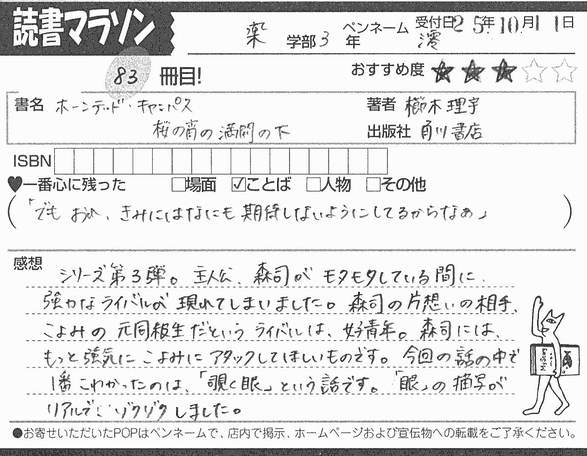 読書マラソン
薬 学部 3 年 ペンネーム 澪 受付日 25年10月11日
83 冊目! おすすめ度 ★★★☆☆
書名 ホーンテッド・キャンパス 著者 櫛木理宇
桜の宵の満開の下 出版社 角川書店
ISBN
♥一番心に残った □場面 ☑ことば □人物 □その他
(「でも おれ、きみにはなにも期待しないようにしてるからなあ」)
感想
シリーズ第3弾。主人公、森司がモタモタしている間に、
強力なライバルが現れてしまいました。森司の片想いの相手、
こよみの元同級生だというライバルは、好青年。森司には、
もっと強気にこよみにアタックしてほしいものです。今回の話の中で
1番こわかったのは、「覗く眼」という話です。「眼」の描写が
リアルで、ゾクゾクしました。
●お寄せいただいたPOPはペンネームで、店内で掲示、ホームページおよび宣伝物への転載をご了承ください。